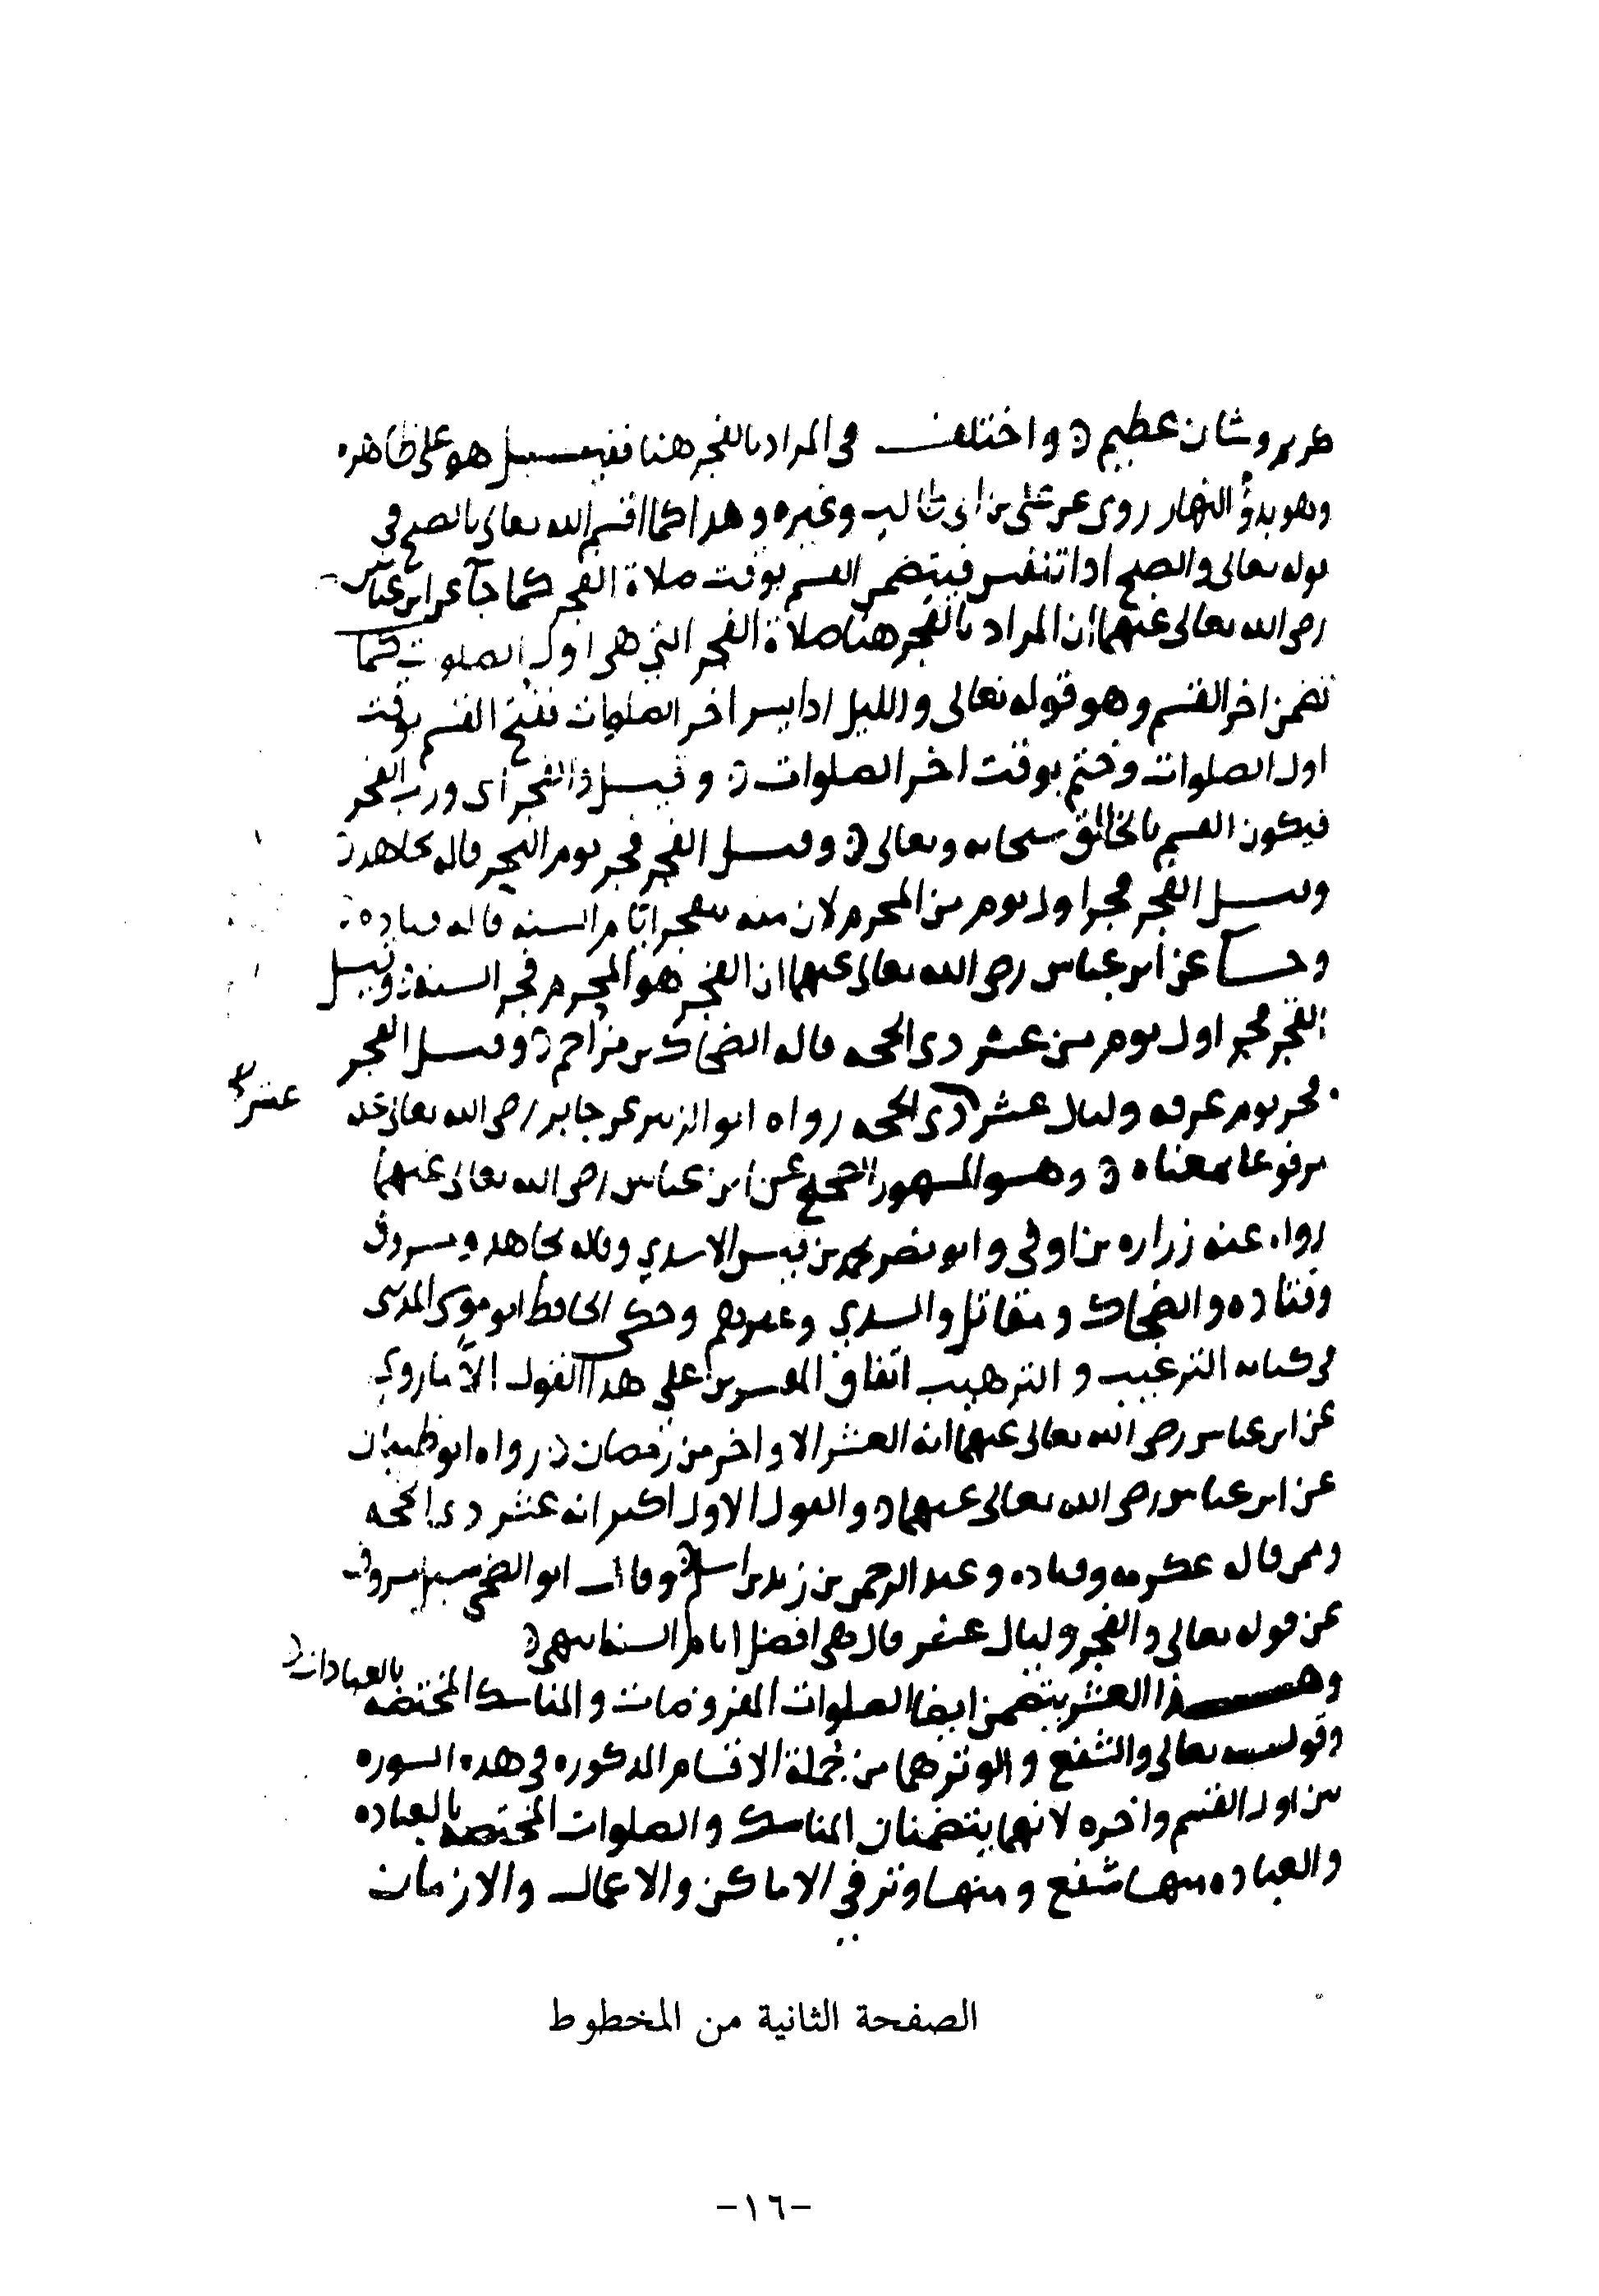 وشان عظيم واختلف في المراد بالفجر هنا فقيل هو على ظاهره
وهو بدؤ النهار روى عن علي بن ابي طالب وغيره وهذا كما اقسم الله تعالى بالصبح في
قوله تعالى والصبح اذا تنفس فيتضمن القسم بوقت صلاة الفجر كما جآ عن ابن عباس
رضي الله تعالى عنهما ان المراد بالفجر هنا صلاة الفجر التي هي اول الصلوات كما
تضمن اخر القسم وهو قوله تعالى والليل اذا يسر اخر الصلوات ففتح القسم بوقت
اول الصلوات وختم بوقت اخر الصلوات وقيل والفجر اى ورب الفجر
فيكون القسم بالخالق سبحانه وتعالى وقيل الفجر فجر يوم النحر قاله مجاهد
وقيل الفجر فجر اول يوم من المحرم لان منه تنفجر ايام السنه قاله قتاده
وجآ عن ابن عباس رضي الله تعالى عنهما ان الفجر هو المحرم فجر السنة وقيل
الفجر فجر اول يوم من عشر ذي الحجه قاله الضحاك بن مزاحم وقيل الفجر
فجر يوم عرفه وليال عشر ذي الحجه رواه ابو الزبير عن جابر رضي الله تعالى عنه
عشر
مرفوعا بمعناه وهو المشهور الصحيح عن ابن عباس رضي الله تعالى عنهما
رواه عنه زراره بن اوفى وابو نصر محمد بن قيس الاسدي وقاله مجاهد ومسروق
وقتاده والضحاك ومقاتل والسدي وغيرهم وحكى الحافظ ابو موسى المديني
في كتابه الترغيب والترهيب اتفاق المفسرين على هذا القول الا ما روي
عن ابن عباس رضي الله تعالى عنهما انه العشر الاواخر من رمضان رواه ابو ظبيان
عن ابن عباس رضي الله تعالى عنهما والقول الاول اكثر انه عشر ذي الحجه
وممن قاله عكرمه وقتاده وعبد الرحمن بن زيد بن اسلم وقال ابو الضحى سيل مسروق
عن قوله تعالى والفجر وليال عشر قال هي افضل ايام السنة انتهى
وهذا العشر يتضمن ايضا الصلوات المفروضات والمناسك المختصه بالعبادات
وقوله تعالى والشفع والوتر هما من جملة الاقسام المذكوره في هذه السوره
من اول القسم واخره لانهما يتضمنان المناسك والصلوات المختصه بالعباده
والعباده منها شفع ومنها وتر في الاماكن والاعمال والازمان
الصفحة الثانية من المخطوط
-١٦-